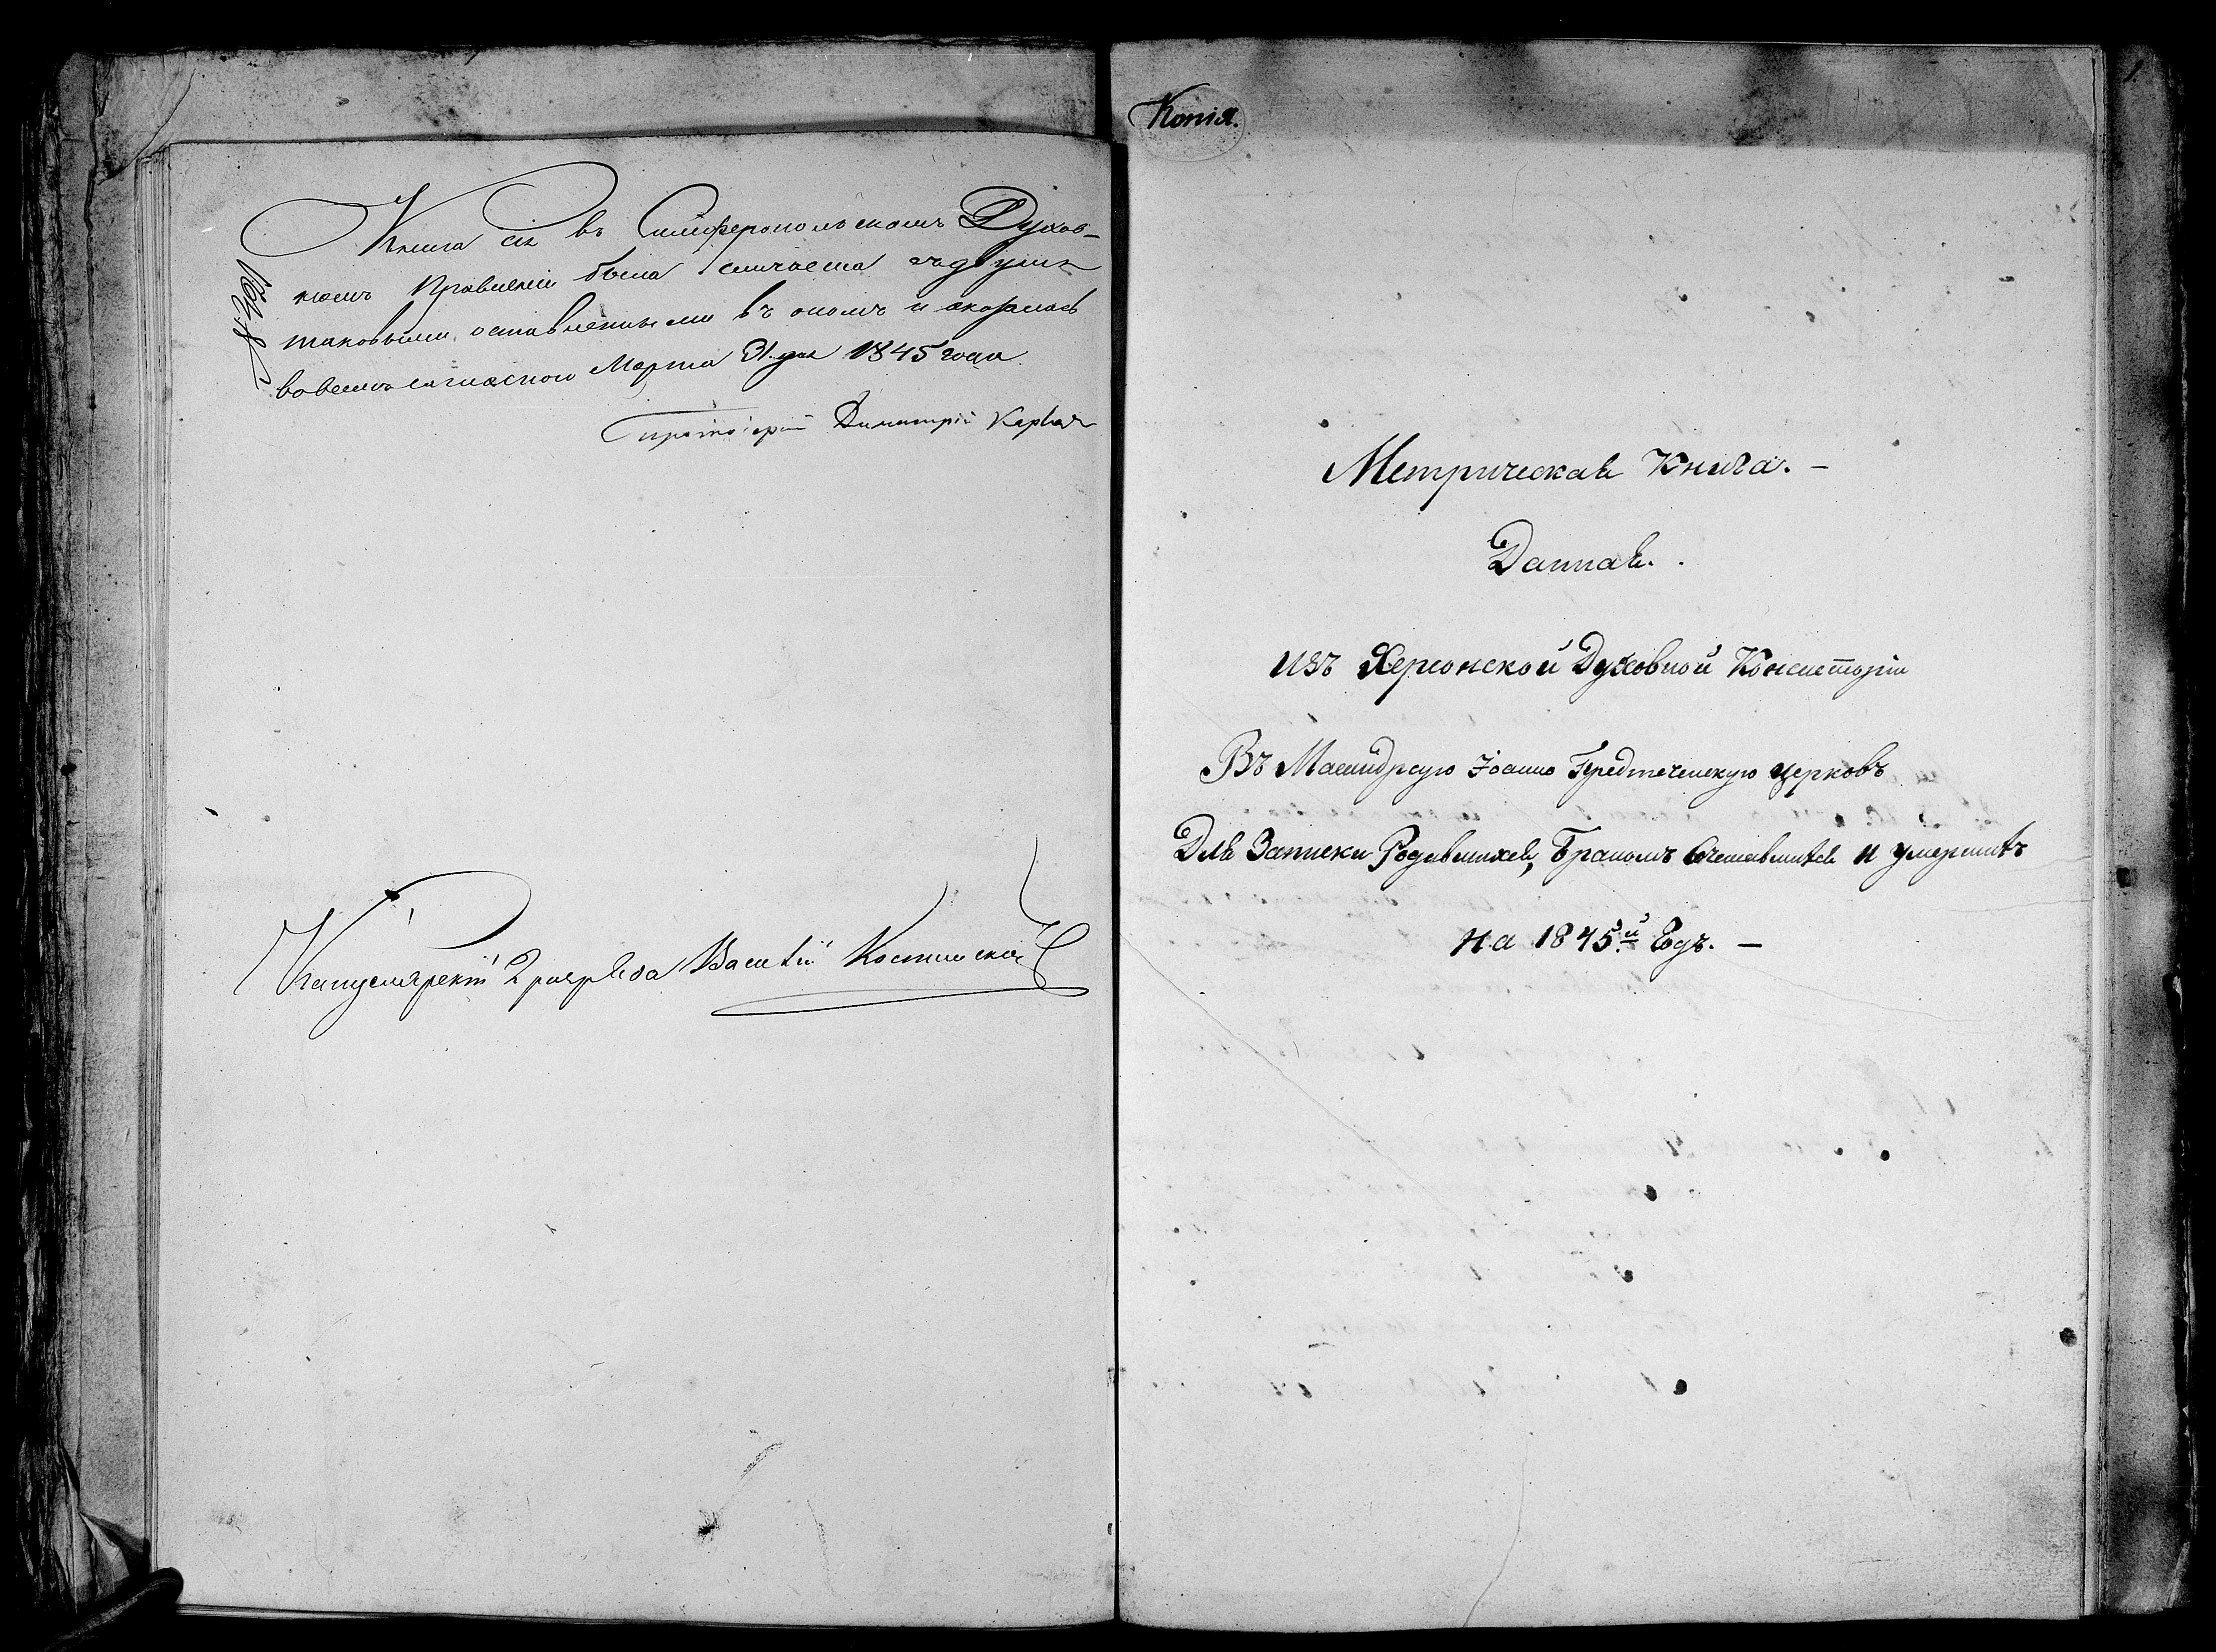 Книга сія въ Симферопольскомъ Духов-
номъ Правленіи была сличаема съ двумя
таковыми, оставленными въ ономъ и оказалась
во всемъ согласною Марта 31 дня 1845 года
Протоіерей Димитрій
№ 291
Канцеляристъ 2 разряда Василій
Копія.
Метрическая Книга. –
Данная.
изъ Херсонской Духовной Консисторіи
Въ Іоанно Предтеченскую церковъ
Для Записки Родившихся, Бракомъ Сочетавшихся и умершихъ
на 1845й Годъ. –